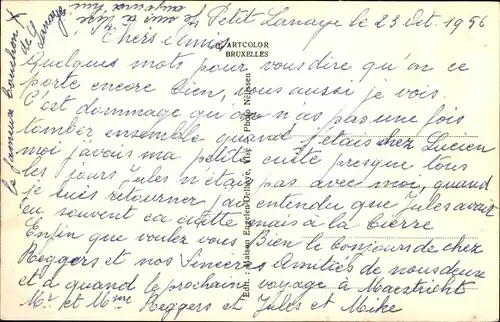 Petit Lanaye le 23 Oct. 1956
Chers Amis
ARTCOLOR
BRUXELLES
Quelques mots pour vous dire qu'on ce
porte encore bien, vous aussi je vois.
C'est dommage qu'on n'as pas une fois
tomber ensemble quand j'étais chez Lucien
moi j'avais ma petite cuite presque tous
les jours Jules n'était pas avec moi, quand
je suis retourner j'ai entendu que Jules avait
eu souvent ca cuitte mais à la bierre
Enfin que voulez vous Bien le bonjours de chez
Reggers et nos Sincères Amitiés de nous deux
et a quand le prochain voyage à Maestricht
Mr et Mme Reggers et Jules et Mike
le fameux bouchon X
de
Lanaye
je suis à
aujourd'hui
Edit. : Maison Engelen-Delhaye, Visé Photo Nélissen